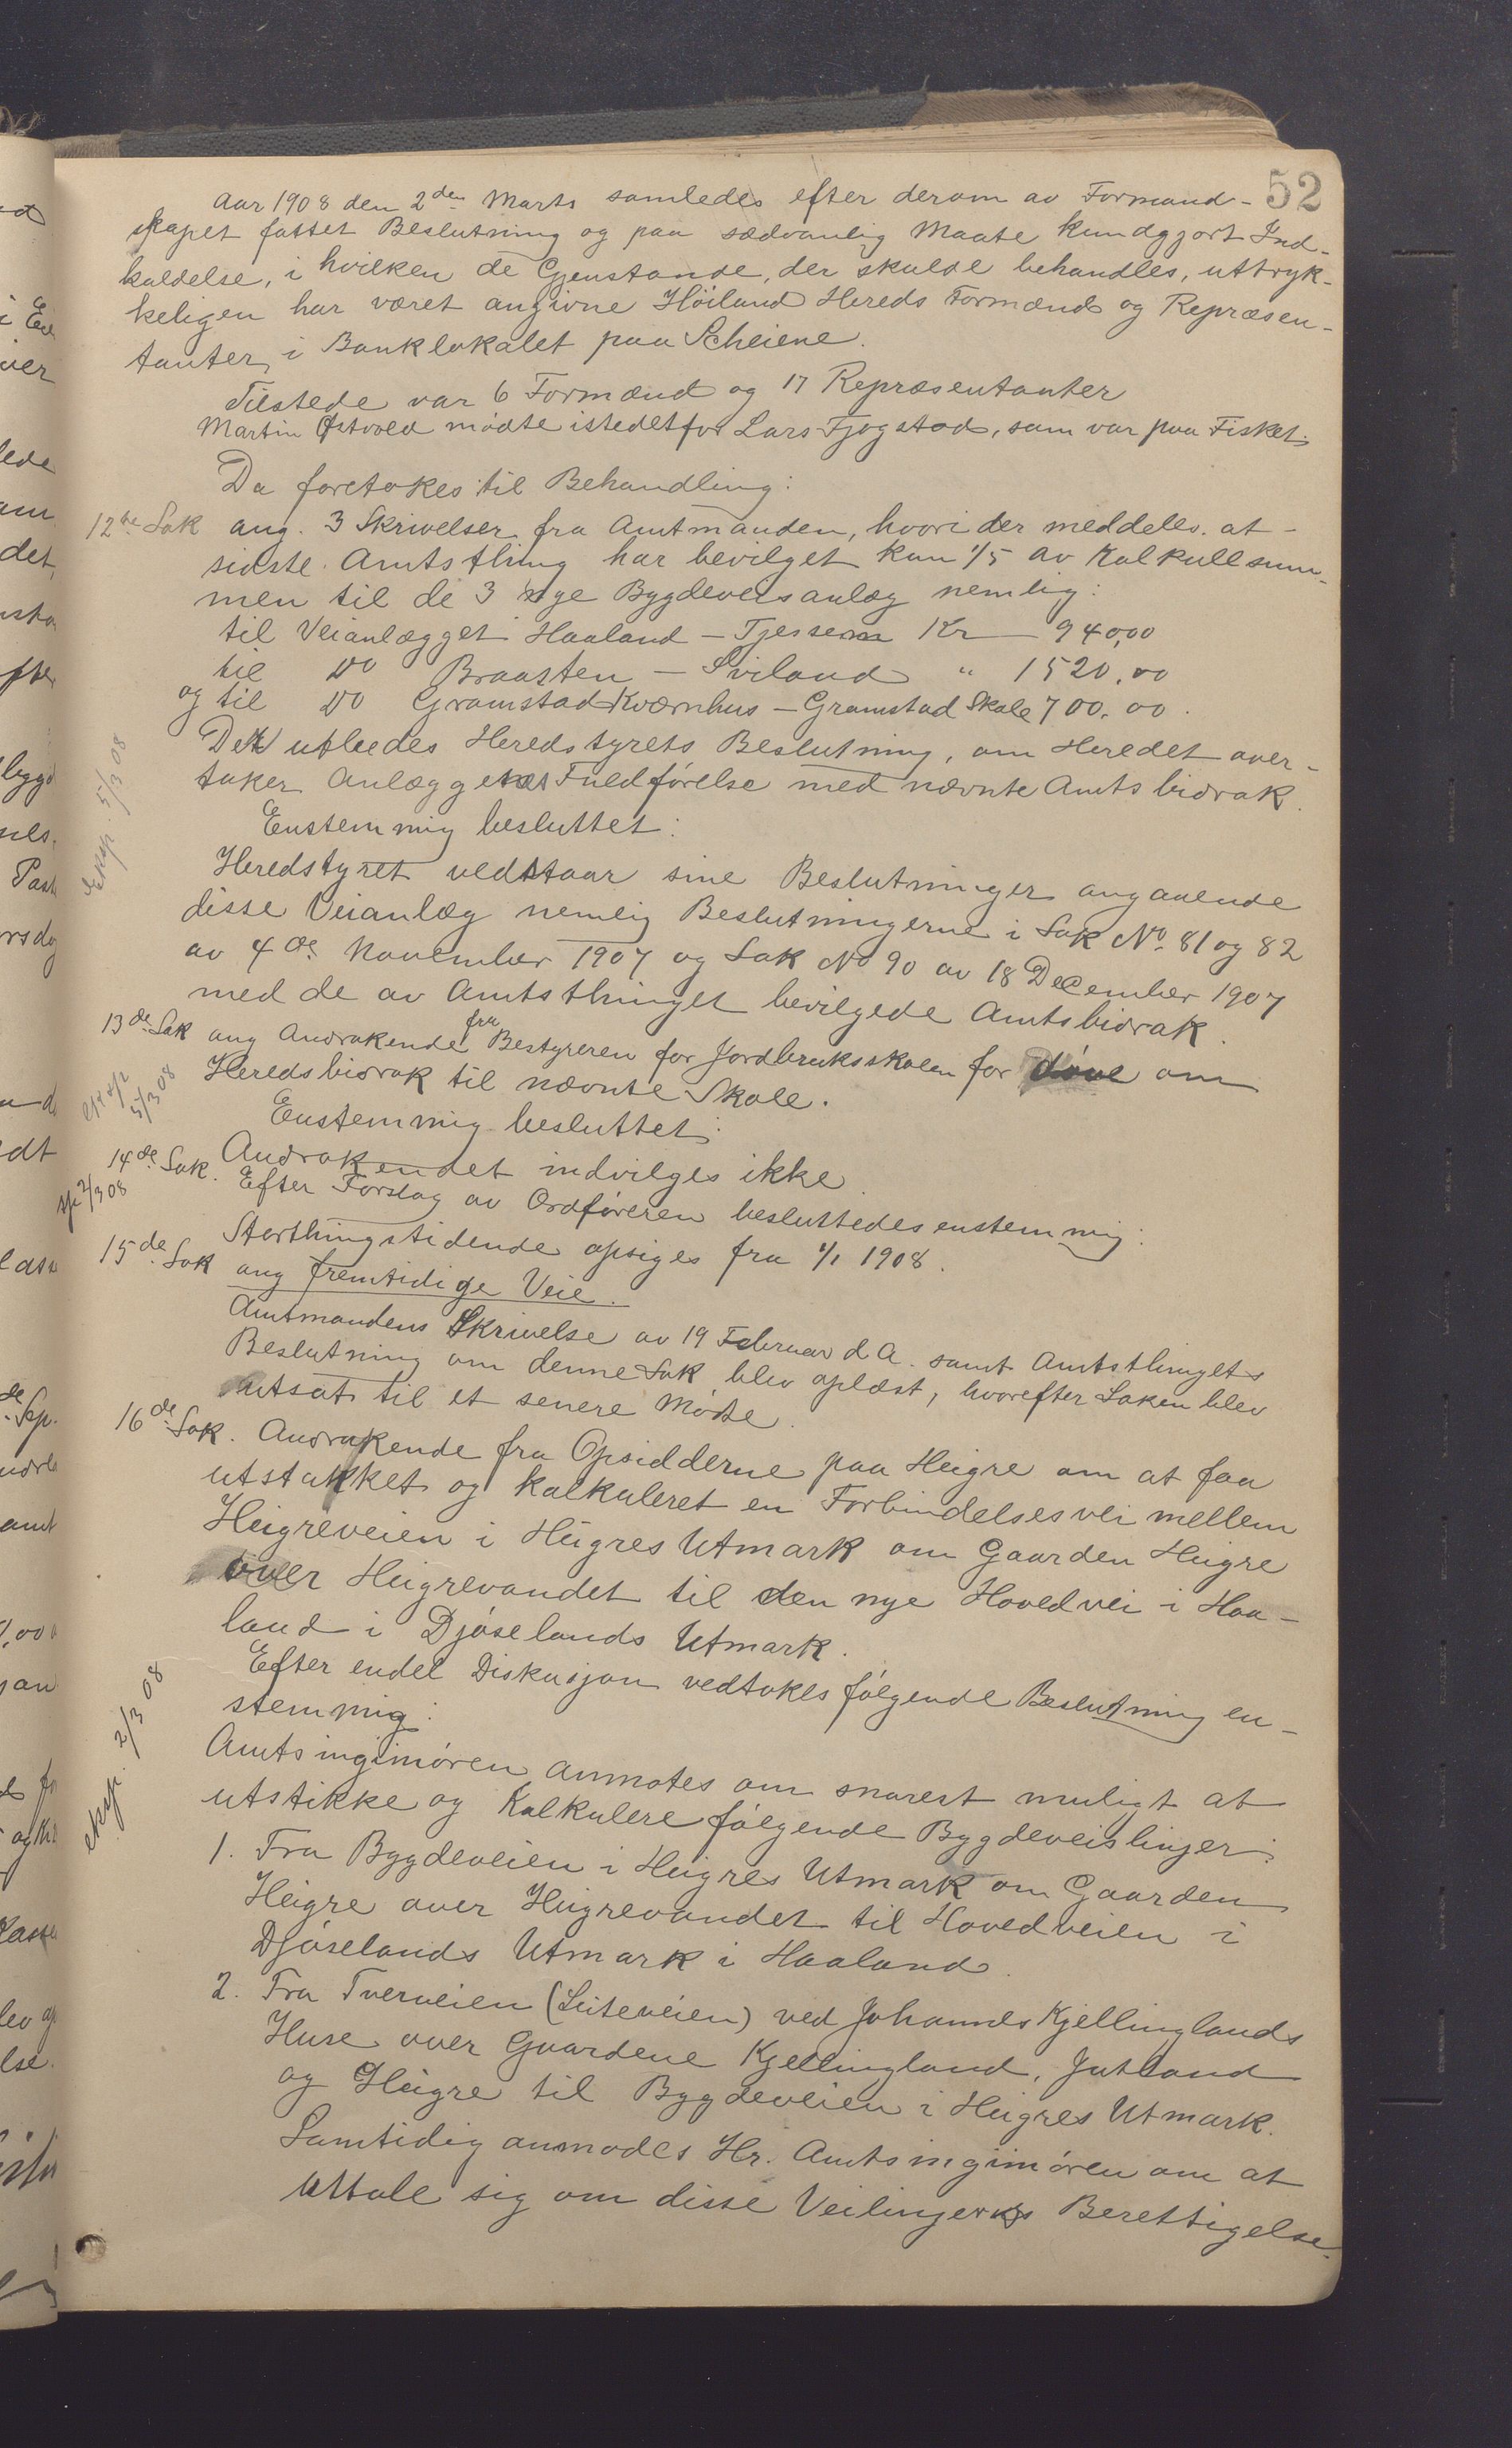 52
Aar 1908 den 2den Marts samledes efter derom av Formand-
skapet fattet Beslutning og paa sædvanlig Maate kundgjort Ind-
kaldelse, i hvilken de Gjenstande, der skulde behandles, uttryk-
keligen har været angivne Höiland Hereds Formænd og Repræsen-
tanter, i Banklokalet paa Scheiene.
Tilstede var 6 Formænd og 17 Repræsentanter
Martin Østvold mødte istedetfor Lars Fjogstad, som var paa Fisket.
Da foretokes til Behandling:
12te Sak ang. 3 Skrivelser fra Amtmanden, hvori der meddeles at
sidste Amtsthing har bevilget kun 1/5 av Kalkullsum-
men til de 3 nye Bygdeveisanlæg nemlig:
til Veianlægget Haaland – Tjessem Kr 940,00
til Do Braasten – Sviland " 1520,00
og til Do Gramstad Kværnhus – Gramstad Skole 700,00.
Det utbedes Heredstyrets Beslutning, om Heredet over-
taker Anlæggenes Fuldførelse med nævnte Amtsbidrak.
Eksp. 5/3 08
Enstemmig besluttet:
Heredstyret vedstaar sine Beslutninger angaaende
disse Veianlæg nemlig Beslutningerne i Sak No. 81 og 82
av 4de November 1907 og Sak No 90 av 18 December 1907
med de av Amtsthinget bevilgede Amtsbidrak.
13de Sak ang Andrakende fra Bestyreren for Jordbruksskolen for døve om
Heredsbidrak til nævnte Skole.
eksp 5/3 08
Enstemmig besluttet:
Andrakendet indvilges ikke.
14de Sak. Efter Forslag av Ordføreren besluttedes enstemmig:
2/3 08
Storthingstidende opsiges fra 1/1 1908.
15de Sak ang fremtidige Veie.
Amtmandens Skrivelse av 19 Februar d A. samt Amtsthingets
Beslutning om denne Sak blev oplæst, hvorefter Saken blev
utsat til et senere Møde.
16de Sak. Andrakende fra Opsidderne paa Heigre om at faa
utstakket og kalkuleret en Forbindelsesvei mellem
Heigreveien i Heigres Utmark om Gaarden Heigre
over Heigrevandet til den nye Hovedvei i Haa-
land i Djøselands Utmark.
Efter endel Diskusjon vedtokes følgende Beslutning en-
stemmig:
eksp. 2/3 08
Amtsinginiøren anmotes om snarest muligt at
utstikke og Kalkulere følgende Bygdeveislinjer:
1. Fra Bygdeveien i Heigres Utmark om Gaarden
Heigre over Heigrevandet til Hovedveien i
Djøselands Utmark i Haaland.
2. Fra Tverveien (Leiteveien) ved Johannes Kjellinglands
Huse over Gaardene Kjellingland, Jutland
og Heigre til Bygdeveien i Heigres Utmark.
Samtidig anmodes Hr. Amtsinginiøren om at
uttale sig om disse Veilinjers Berettigelse.